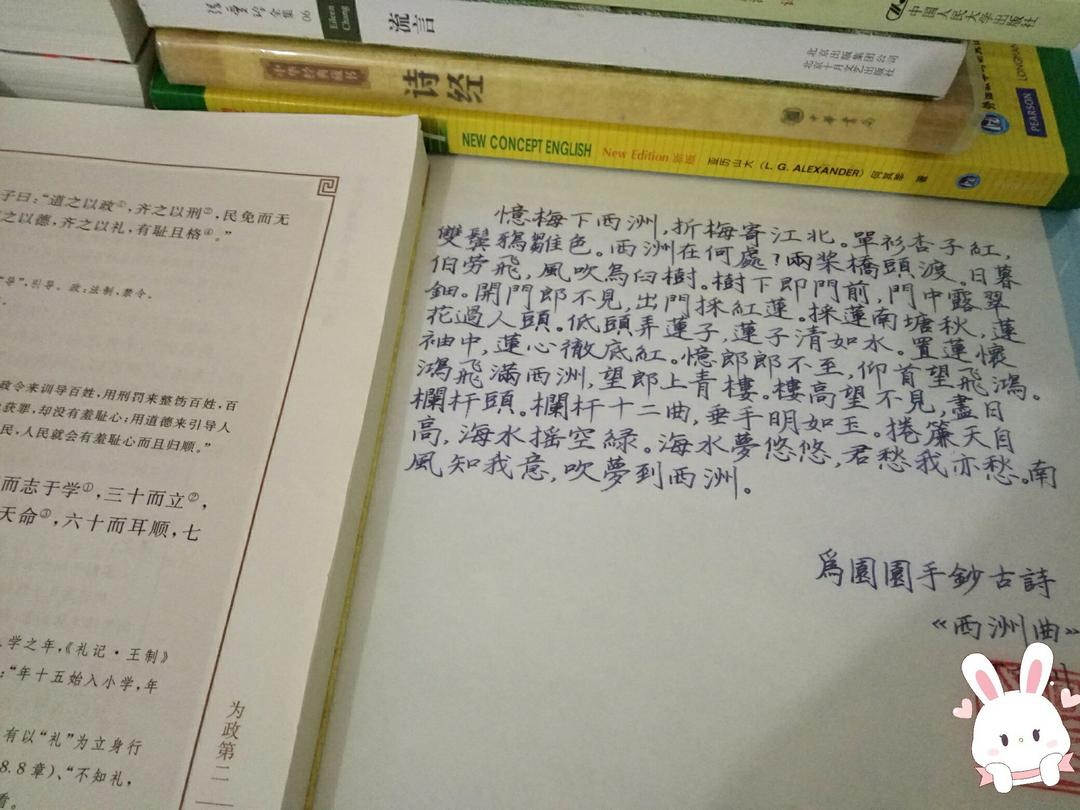 张爱玲全集 06
Eileen Chang
流言
北京出版集团公司
北京十月文艺出版社
中国人民大学出版社
中华经典藏书
诗经
中华书局
NEW CONCEPT ENGLISH New Edition 新版 亚历山大 (L. G. ALEXANDER) 何其莘 著
PEARSON
子曰：“道之以政①，齐之以刑②，民免而无
之以德，齐之以礼，有耻且格④。”
导”，引导。政：法制，禁令。
政令来训导百姓，用刑罚来整饬百姓，百
获罪，却没有羞耻心；用道德来引导人
民，人民就会有羞耻心而且归顺。”
而志于学①，三十而立②，
天命③，六十而耳顺，七
学之年，《礼记·王制》
：“年十五始入小学，年
有以“礼”为立身行
8.8章）、“不知礼，
看。
为政第二
憶梅下西洲，折梅寄江北。單衫杏子紅，
雙鬓鴉雛色。西洲在何處？兩桨橋頭渡。日暮
伯劳飛，風吹烏臼樹。樹下即門前，門中露翠
鈿。開門郎不見，出門採紅蓮。採蓮南塘秋，蓮
花過人頭。低頭弄蓮子，蓮子清如水。置蓮懷
袖中，蓮心徹底紅。憶郎郎不至，仰首望飛鴻。
鴻飛滿西洲，望郎上青樓。樓高望不見，盡日
欄杆頭。欄杆十二曲，垂手明如玉。捲簾天自
高，海水摇空緑。海水夢悠悠，君愁我亦愁。南
風知我意，吹夢到西洲。
爲園園手鈔古詩
《西洲曲》